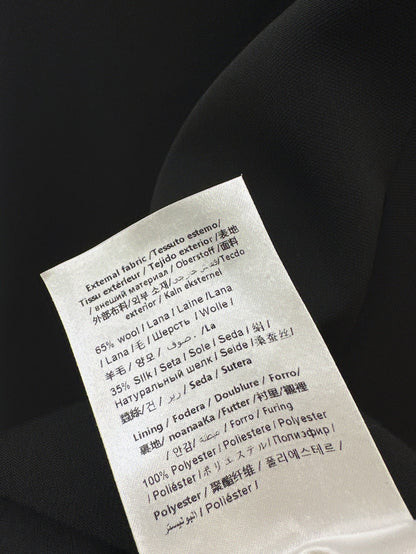 External fabric /Tessuto esterno/
Tissu extérieur / Tejido exterior /表地
/ внешний материал / Oberstoff /面料
外部布料/외부 소재/ /Tecdo
exterior / Kain eksternel
65% wool / Lana / Laine /Lana
/ Lana /毛 / Шерсть / Wolle /
羊毛/ 양모 / صوف /La
35% Silk / Seta / Soie / Seda /絹 /
Натуральный шелк / Seide / 桑蚕丝/
蠶絲/견/ /Seda / Sutera
Lining / Fodera / Doublure / Forro/
裏地/ /Futter /衬里/襯裡
/ 안감/ / Forro / Furing
100% Polyester / Poliestere / Polyester
/ Poliéster /ポリエステル/ Полиэфир /
Polyester /聚酯纤维 / 폴리에스테르 /
/ Poliéster /